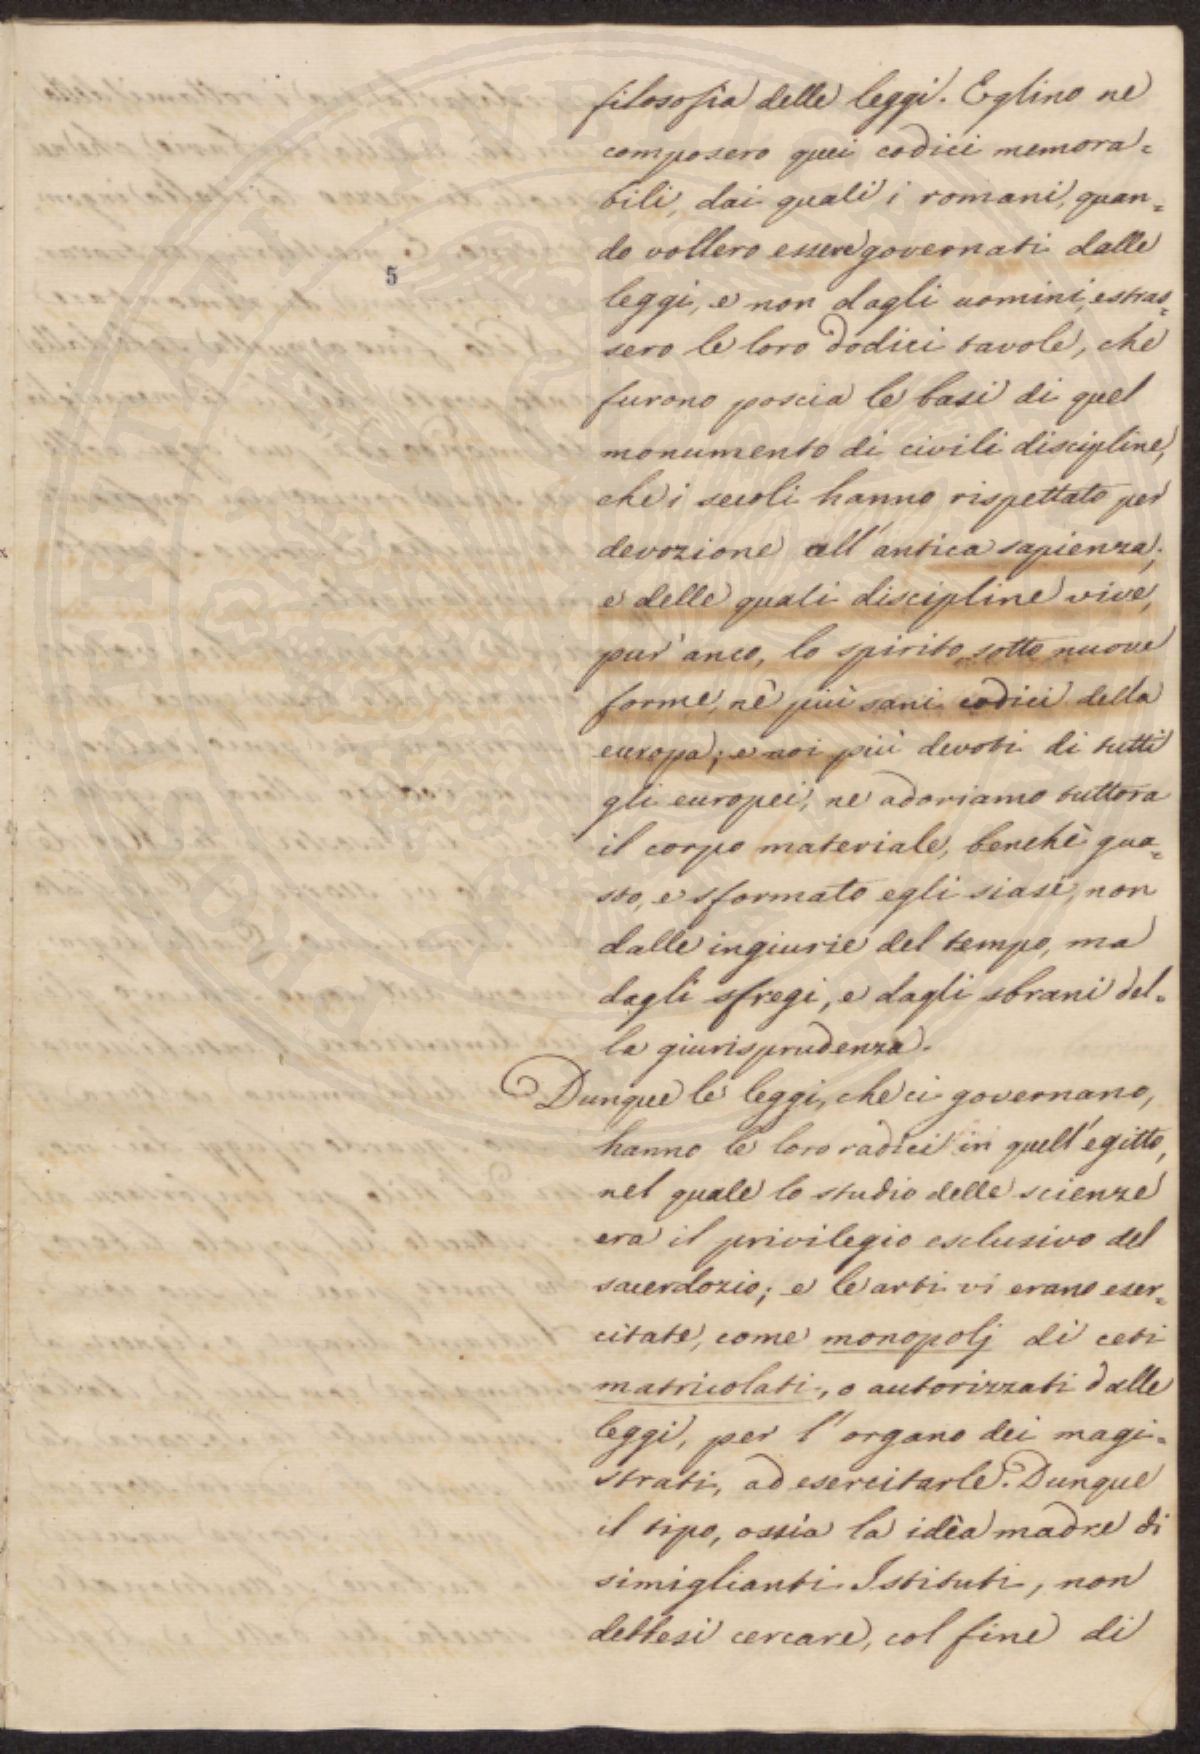 filosofia delle leggi. Eglino ne
composero quei codici memora=
bili, dai quali i romani, quan=
do vollero essere governati dalle
leggi, e non dagli uomini, estras=
sero le loro dodici tavole, che
furono poscia le basi di quel
monumento di civili discipline,
che i secoli hanno rispettato per
devozione all'antica sapienza;
e delle quali discipline vive,
pur'anco, lo spirito sotto nuove
forme, nè più sani codici della
europa; e noi più devoti di tutti
gli europei, ne adoriamo tuttora
il corpo materiale, benchè gua=
sto, e sformato egli siasi, non
dalle ingiurie del tempo, ma
dagli sfregi, e dagli sbrani del=
la giurisprudenza.
Dunque le leggi, che ci governano,
hanno le loro radici in quell'egitto,
nel quale lo studio delle scienze
era il privilegio esclusivo del
sacerdozio; e le arti vi erano eser=
citate, come monopolj di ceti
matricolati, o autorizzati dalle
leggi, per l'organo dei magi=
strati, ad esercitarle. Dunque
il tipo, ossia la idèa madre di
simiglianti Istituti, non
debbesi cercare, col fine di
5